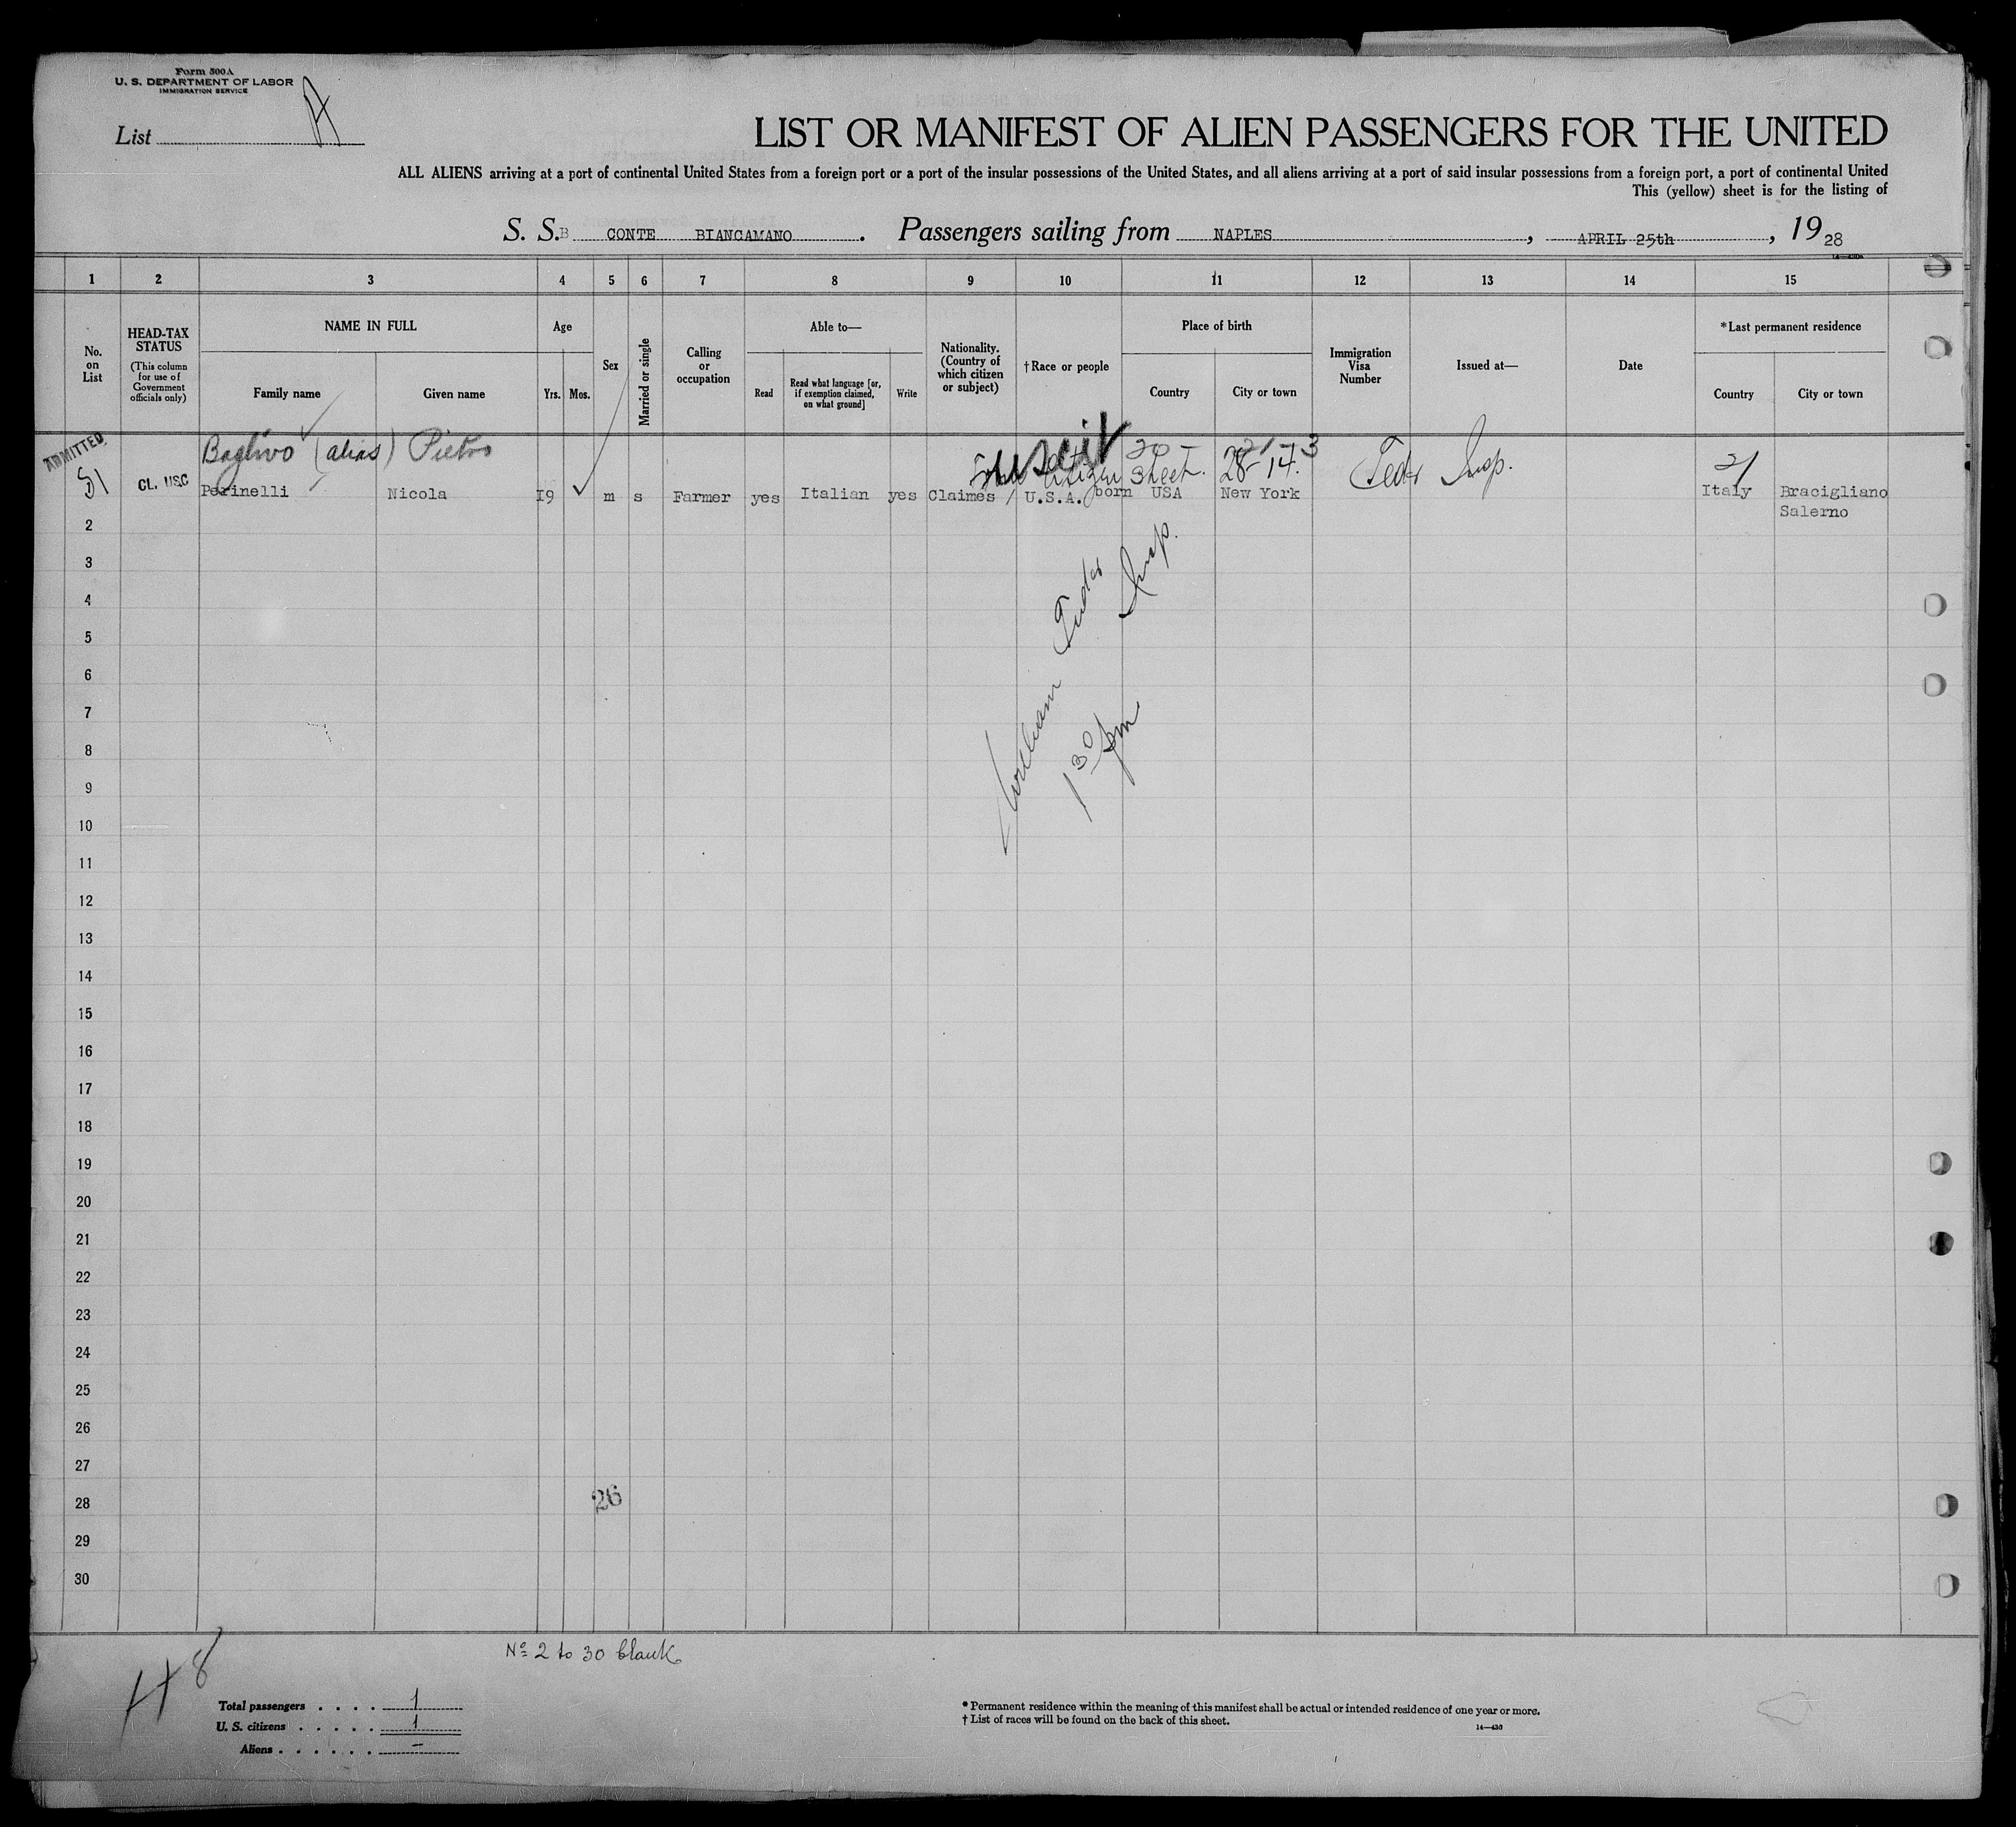 Form 500A
U. S. DEPARTMENT OF LABOR
IMMIGRATION SERVICE
List
LIST OR MANIFEST OF ALIEN PASSENGERS FOR THE UNITED
ALL ALIENS arriving at a port of continental United States from a foreign port or a port of the insular possessions of the United States, and all aliens arriving at a port of said insular possessions from a foreign port, a port of continental United
This (yellow) sheet is for the listing of
S. S. B CONTE BIANCAMANO . Passengers sailing from NAPLES , APRIL 25th , 19 28
1 2 3 4 5 6 7 8 9 10 11 12 13 14 15
No. on List
HEAD-TAX STATUS
(This column for use of Government officials only)
NAME IN FULL
Family name Given name
Age
Yrs. Mos.
Sex
Married or single
Calling or occupation
Able to—
Read Read what language [or, if exemption claimed, on what ground] Write
Nationality. (Country of which citizen or subject)
†Race or people
Place of birth
Country City or town
Immigration Visa Number
Issued at—
Date
*Last permanent residence
Country City or town
ADMITTED
Baglivo (alias) Pietro
20 - 21 - 3
Citizen Sheet. 28-14. Insp.
CL. USC Perinelli Nicola 19 m s Farmer yes Italian yes Claimes U.S.A. born USA New York Italy Bracigliano
Salerno
2
3
4
5
6
7
8
9
10
11
12
13
14
15
16
17
18
19
20
21
22
23
24
25
26
27
28
29
30
William Insp.
1 30 pm
26
No 2 to 30 blank
48
Total passengers . . . . 1
U. S. citizens . . . . . 1
Aliens . . . . . . -
* Permanent residence within the meaning of this manifest shall be actual or intended residence of one year or more.
† List of races will be found on the back of this sheet.
14—430